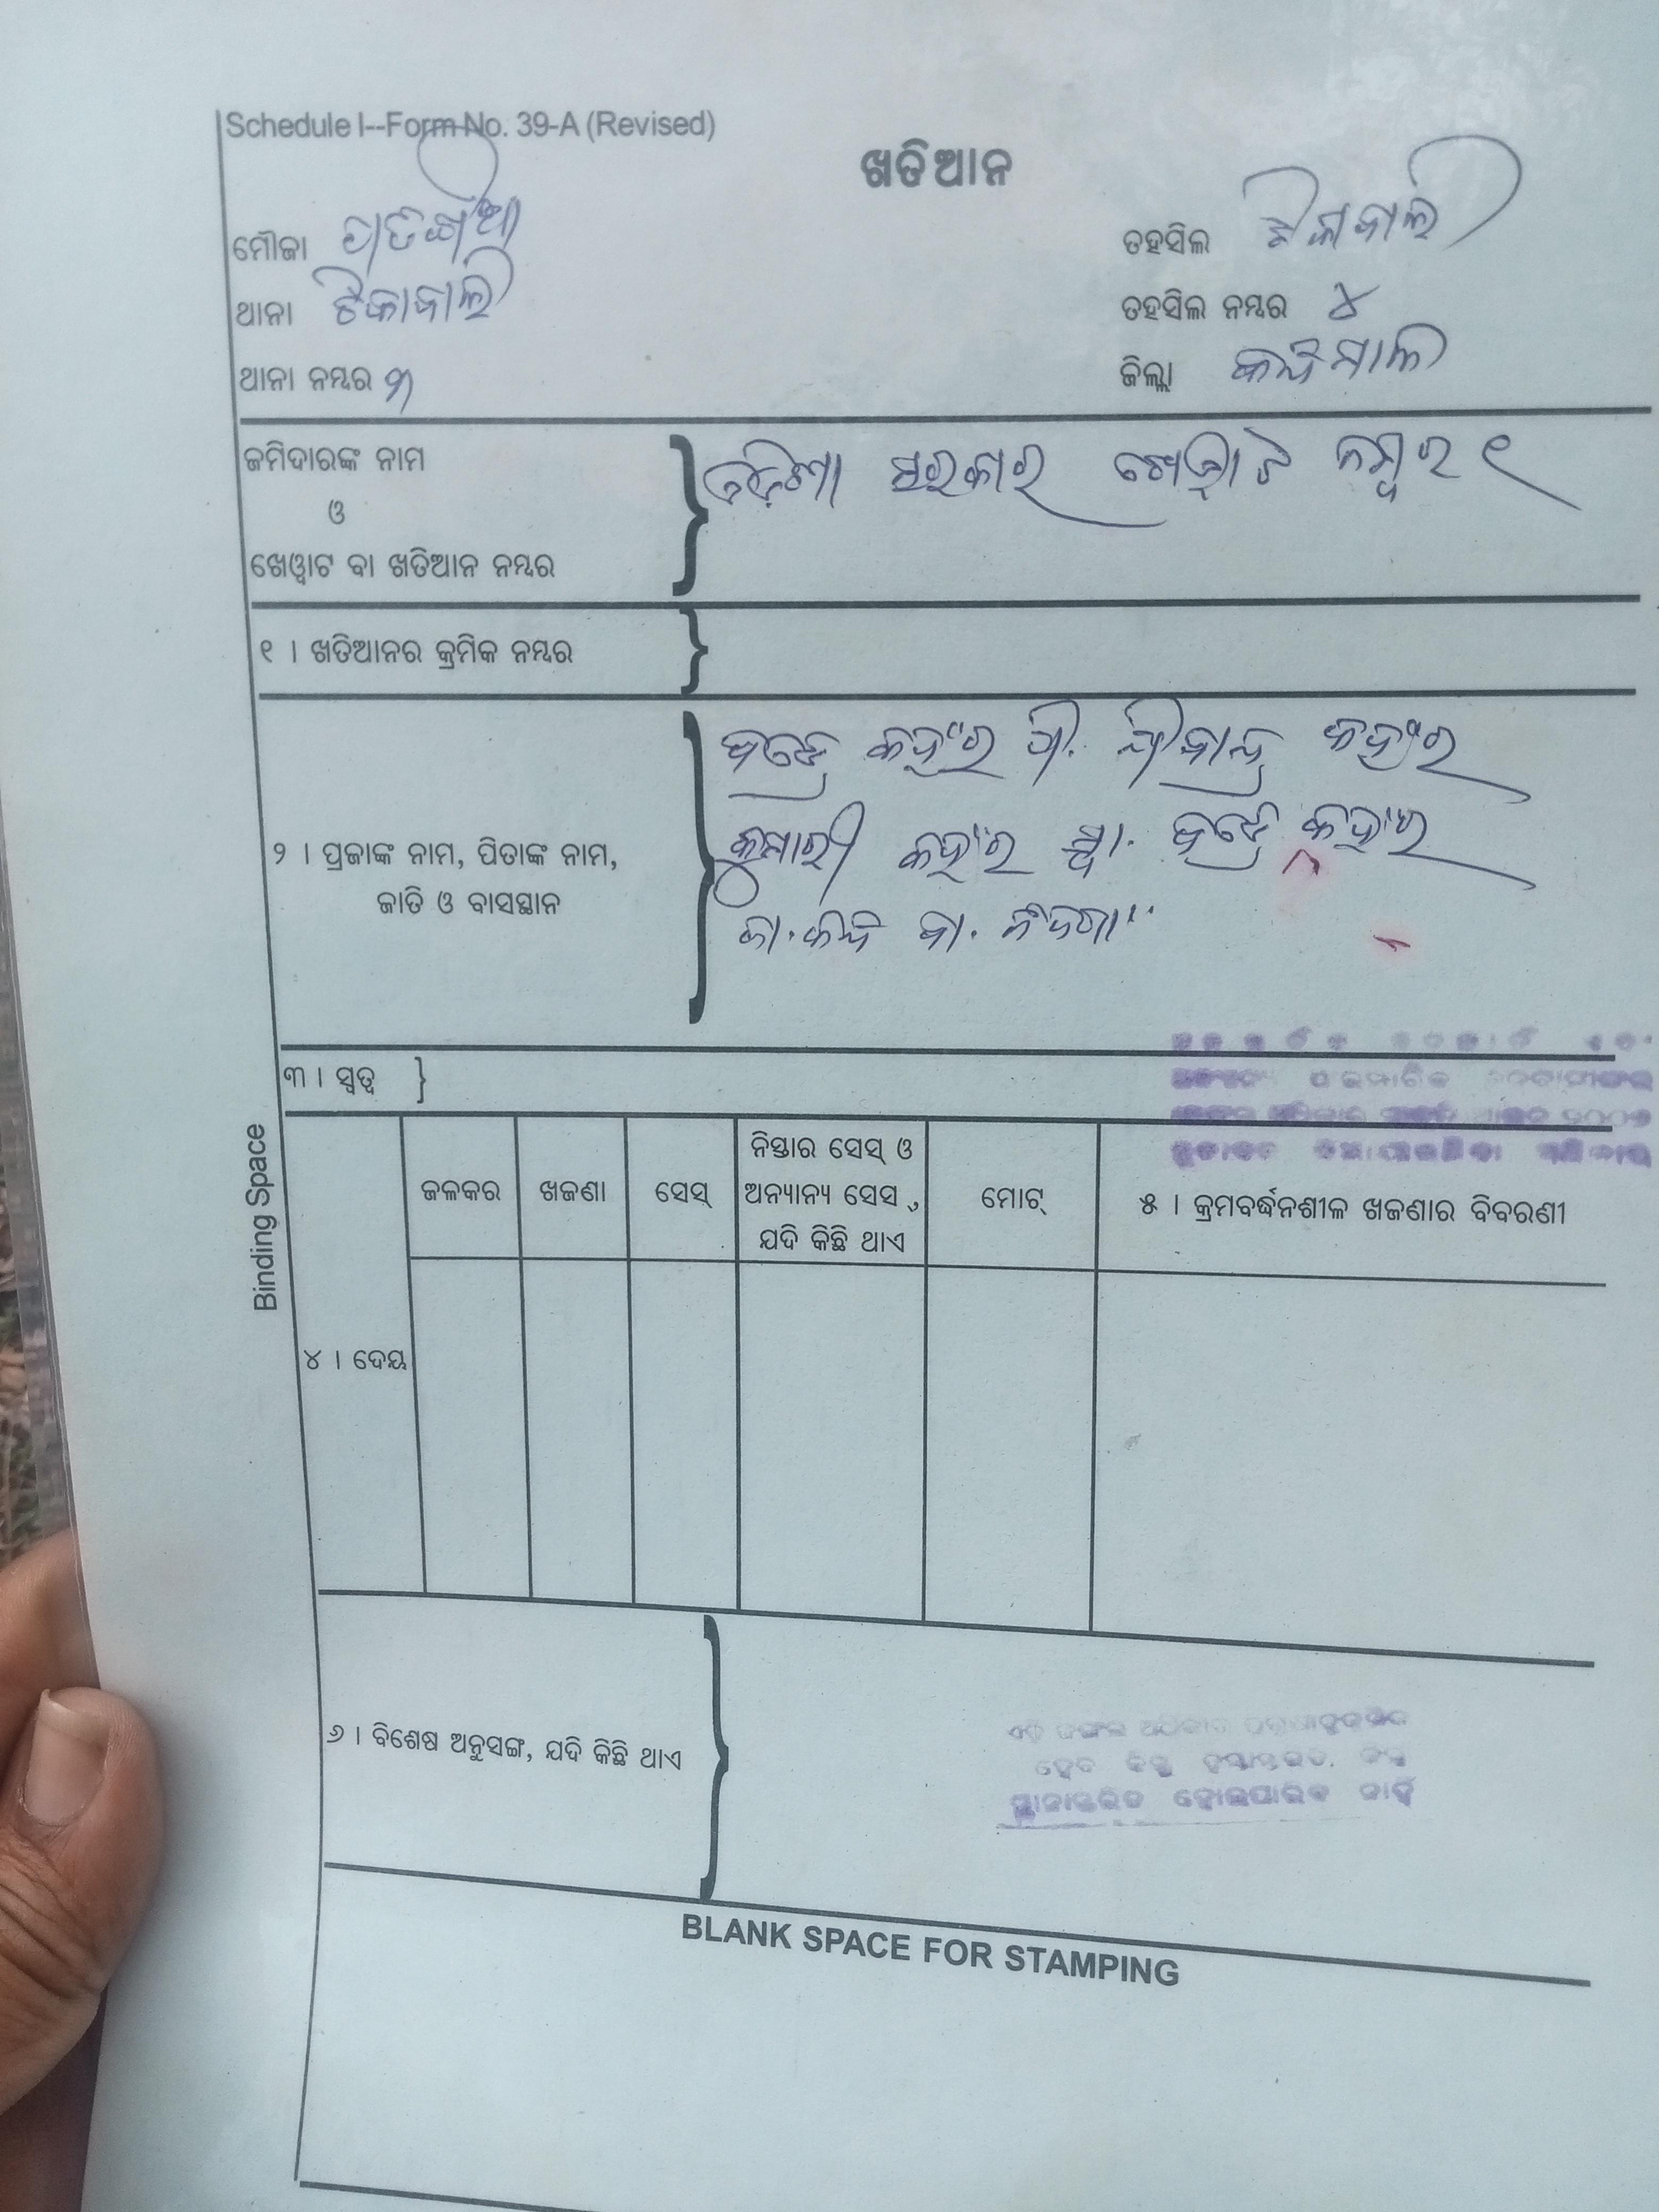 Schedule I--Form No. 39-A (Revised)
ଖତିଆନ
ମୌଜା
ତହସିଲ ଟିକାବାଲି
ଥାନା ଟିକାବାଲି
ତହସିଲ ନମ୍ବର ୪
ଥାନା ନମ୍ବର
ଜିଲ୍ଲା କନ୍ଧମାଳ
ଜମିଦାରଙ୍କ ନାମ
ଓ
ଖେୱାଟ ବା ଖତିଆନ ନମ୍ବର
ଓଡ଼ିଶା ସରକାର ଖେୱାଟ ନମ୍ବର ୧
୧ । ଖତିଆନର କ୍ରମିକ ନମ୍ବର
୨ । ପ୍ରଜାଙ୍କ ନାମ, ପିତାଙ୍କ ନାମ,
ଜାତି ଓ ବାସସ୍ଥାନ
କହଁର ପି. କହଁର
କୁମାରୀ କହଁର ସ୍ୱା. କହଁର
ଜା. କନ୍ଧ ବା. ନିଜଗାଁ
୩ । ସ୍ୱତ୍ୱ
Binding Space
୪ । ଦେୟ
ଜଳକର
ଖଜଣା
ସେସ୍
ନିସ୍ତାର ସେସ୍ ଓ
ଅନ୍ୟାନ୍ୟ ସେସ୍,
ଯଦି କିଛି ଥାଏ
ମୋଟ୍
୫ । କ୍ରମବର୍ଦ୍ଧନଶୀଳ ଖଜଣାର ବିବରଣୀ
୬ । ବିଶେଷ ଅନୁସଙ୍ଗ, ଯଦି କିଛି ଥାଏ
ହେବ କିନ୍ତୁ ହସ୍ତାନ୍ତରିତ, କିମ୍ବା
ସ୍ଥାନାନ୍ତରିତ ହୋଇପାରିବ ନାହିଁ
BLANK SPACE FOR STAMPING